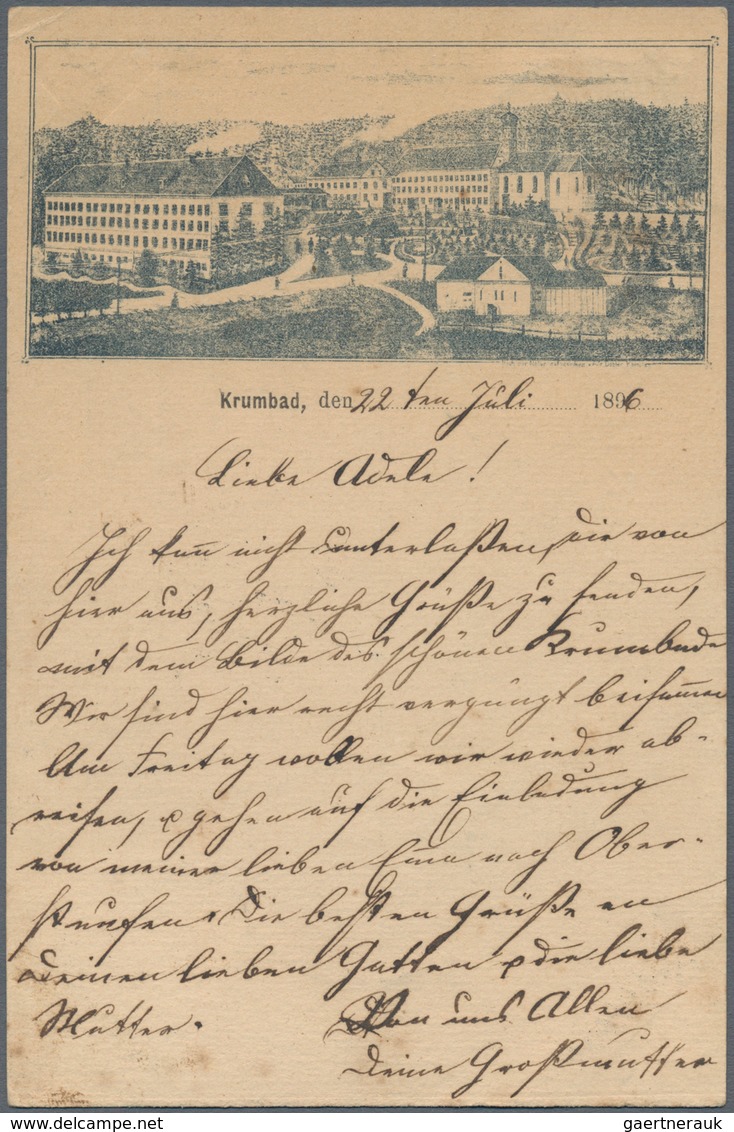 Krumbad, den 22ten Juli 1896
Liebe Adele!
Ich kann nicht unterlaßen, Dir von
hier aus, herzliche Grüße zu senden,
mit dem Bilde des schönen Krumbade
Wir sind hier recht vergnügt beisammen
Am Freitag wollen wir wieder ab-
reisen, u gehen auf die Einladung
von meiner lieben Ema nach Ober-
staufen. Die besten Grüße an
Deinen lieben Gatten u die liebe
Mutter. Von uns Allen
Deine Großmutter
gaertnerauk